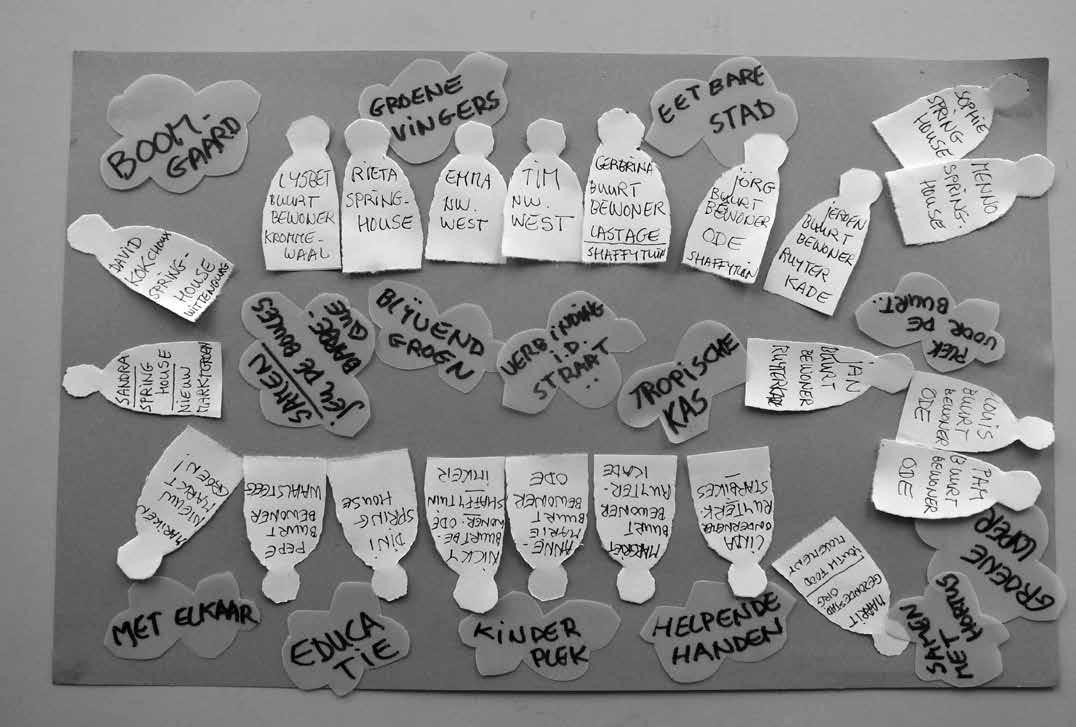 BOOM-
GAARD
GROENE
VINGERS
EETBARE
STAD
SOPHIE
SPRING
HOUSE
MENNO
SPRING-
HOUSE
LYSBET
BUURT
BEWONER
KROMME-
WAAL
RIETA
SPRING-
HOUSE
EMMA
NW.
WEST
TIM
NW.
WEST
GERBRINA
BUURT
BEWONER
LASTAGE
SHAFFYTUIN
JÖRG
BUURT
BEWONER
ODE
SHAFFYTUIN
JEROEN
BUURT
BEWONER
RUYTER
KADE
DAVID
SPRING-
HOUSE
WITTENBURG
SAMEN
JEU DE BOULES
BARBE-
QUE
BLIJVEND
GROEN
VERBINDING
I.D.
STRAAT
TROPISCHE
KAS
PLEK
VOOR DE
BUURT.
SANDRA
SPRING
HOUSE
NIEUW
MARKTGROEN
JAN
BUURT
BEWONER
RUYTERKADE
LOUIS
BUURT
BEWONER
ODE
PAM
BUURT
BEWONER
ODE
NIEUW
MARKT
GROEN!
PEPE
BUURT
BEWONER
WAALSTEEG
DINI
SPRING
HOUSE
NICKY
BUURTBE-
WONER-ODE
SHAFFYTUIN
IMKER
ANNE-
MARIE
BUURT
BEWONER
ODE
MARGRET
BUURT
BEWONER
RUYTER-
KADE
CINDA
ONDERNEMER
RUYTERK.
STARBIKES
MARRIT
YOUTH FOOD
MOVEMENT
GROENE
LOPER
SAMEN
MET
HORTUS
MET ELKAAR
EDUCA
TIE
KINDER
PLEK
HELPENDE
HANDEN